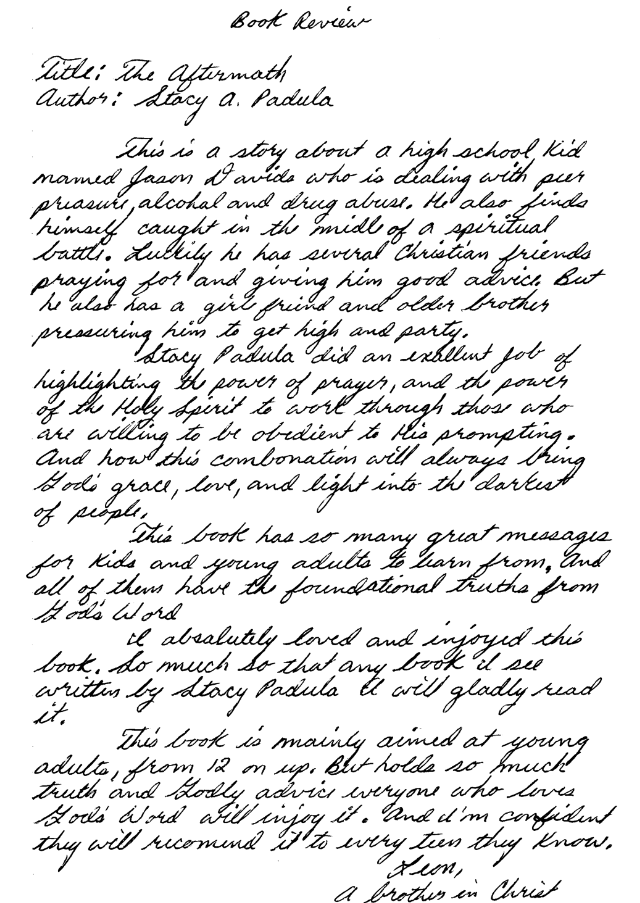 Book Review
Title: The Aftermath
Author: Stacy A. Padula
This is a story about a high school kid
named Jason Davids who is dealing with peer
preasure, alcohal and drug abuse. He also finds
himself caught in the midle of a spiritual
battle. Luckily he has several Christian friends
praying for and giving him good advice. But
he also has a girl freind and older brother
pressuring him to get high and party.
Stacy Padula did an exellent job of
highlighting the power of prayer, and the power
of the Holy Spirit to work through those who
are willing to be obedient to His prompting.
And how this combonation will always bring
God's grace, love, and light into the darkest
of people.
This book has so many great messages
for kids and young adults to learn from. And
all of them have the foundational truths from
God's Word
I absalutely loved and injoyed this
book. So much so that any book I see
written by Stacy Padula I will gladly read
it.
This book is mainly aimed at young
adults, from 12 on up. But holds so much
truth and Godly advice everyone who loves
God's Word will injoy it. And I'm confident
they will recomend it to every teen they know.
Leon,
A brother in Christ